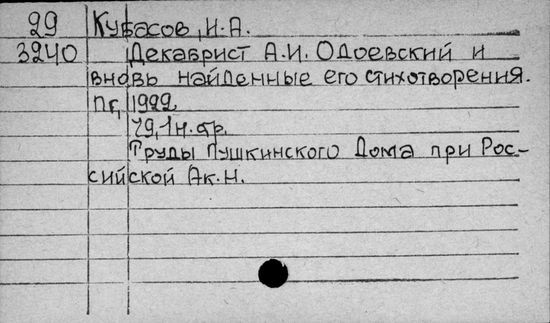 29 Кубасов, И.А.
3240 Декабрист А.И. Одоевский и
вновь найденные его стихотворения.
Пг, 1922.
79, 1 н. стр.
Труды Пушкинского Дома при Рос-
сийской Ак. Н.